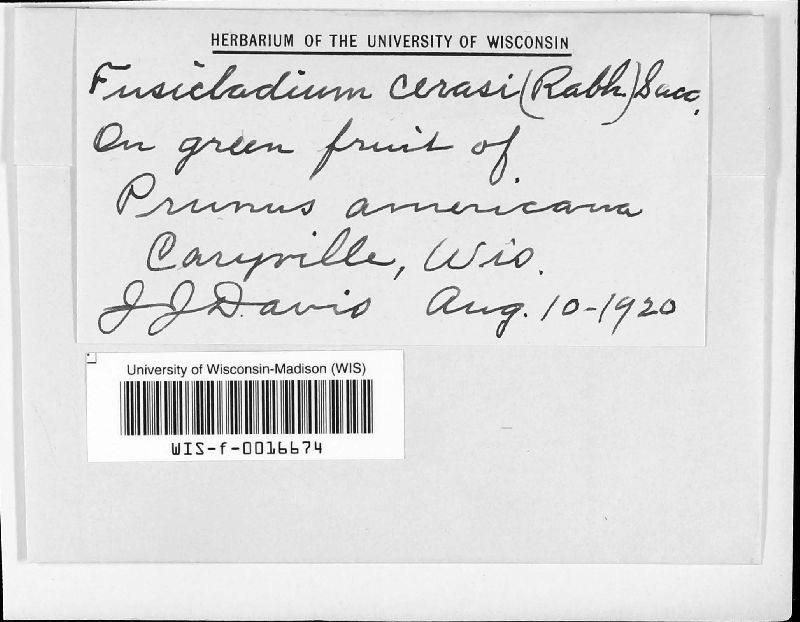 HERBARIUM OF THE UNIVERSITY OF WISCONSIN
Fusicladium cerasi (Rabh.) Sacc.
On green fruit of
Prunus americana
Caryville, Wis.
J J Davis Aug. 10-1920
University of Wisconsin-Madison (WIS)
WIS-f-0016674